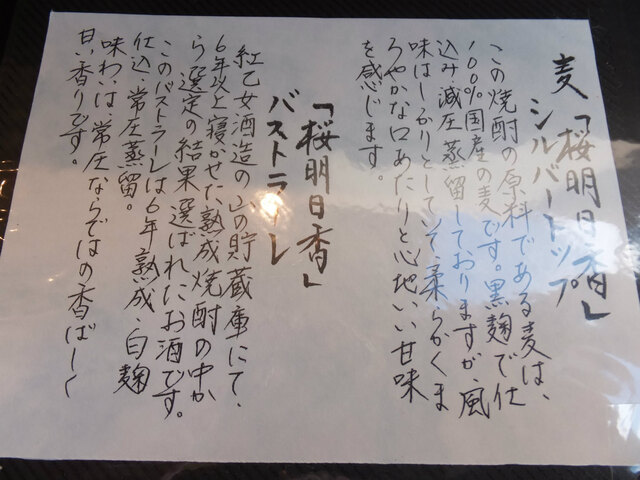 麦「桜明日香」
シルバートップ
この焼酎の原料である麦は、
100%国産の麦です。黒麹で仕
込み、減圧蒸留しておりますが、風
味はしっかりとしていて、柔らかくま
ろやかな口あたりと心地いい甘味
を感じます。
「桜明日香」
バストラーレ
紅乙女酒造の山の貯蔵庫にて、
6年以上寝かせた熟成焼酎の中か
ら選定の結果選ばれたお酒です。
このバストラーレは6年熟成・白麹
仕込・常圧蒸留。
味わいは、常圧ならではの香ばしく
甘い香りです。